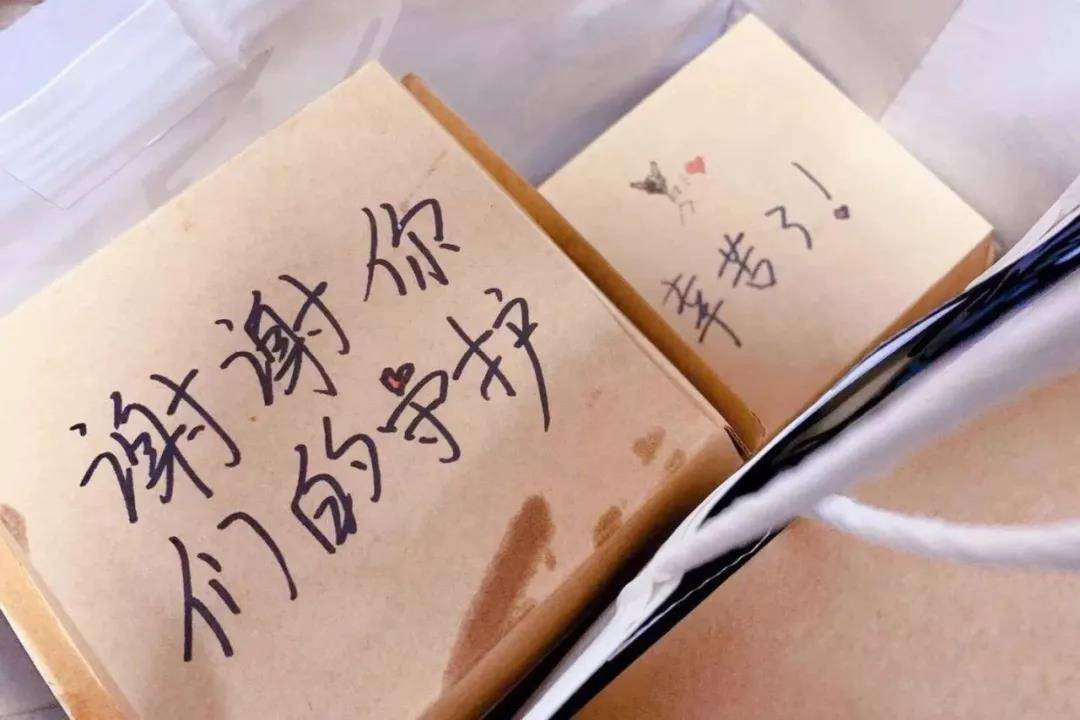 谢谢你
们的守护
辛苦了!